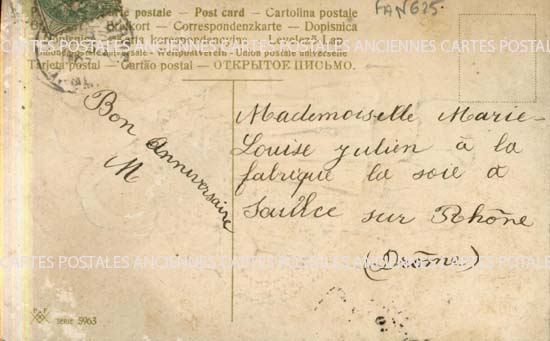 FANG25.
Carte postale – Post card – Cartolina postale
Correspondenzkarte – Dopisnica
korespondencyjna – Levelező Lap
Weltpostverein – Union postale universelle
Tarjeta postal – Cartão postal – ОТКРЫТОЕ ПИСЬМО.
Bon anniversaire
M
Mademoiselle Marie-
Louise Julien à la
fabrique la soie à
Saulce sur Rhône
(Drôme)
CARTES POSTALES ANCIENNES CARTES POSTALES ANCIENNES CARTES POSTALES
CARTES POSTALES ANCIENNES CARTES POSTALES ANCIENNES CARTES POSTALES
SERIE 5963